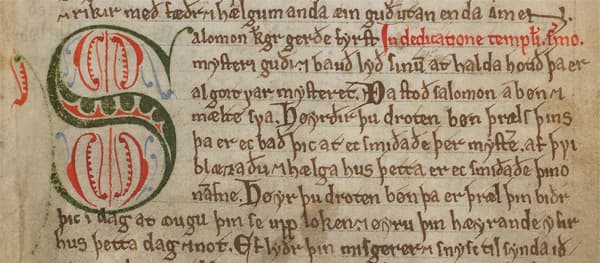 ⁊ rikir með fæðr ⁊ hælgum anda æin guð utan enda amen
Salomon kgr gerðe fyrst In dedicatione templi. smo.
mysteri guði ⁊ bauð lyð sinū at halda hotið þa er
algort var mysteret. Þa stoð salomon a bøn ⁊
mælte sva. Høyrðu þu droten bøn þræls þins
þa er ec bað þic at ec smiðaðe þer myst. at þu
blæzaðu ⁊ hælga hus þetta er ec smiðaðe þino
nafne. Høyr þu droten bøn þa er þræl þin biðr
þic i dag at ougu þin se upp loken ⁊ øyru þin hæyrande yfir
hus þetta dag ⁊ not. Ef lyðr þin misgerer ⁊ snysc til synda